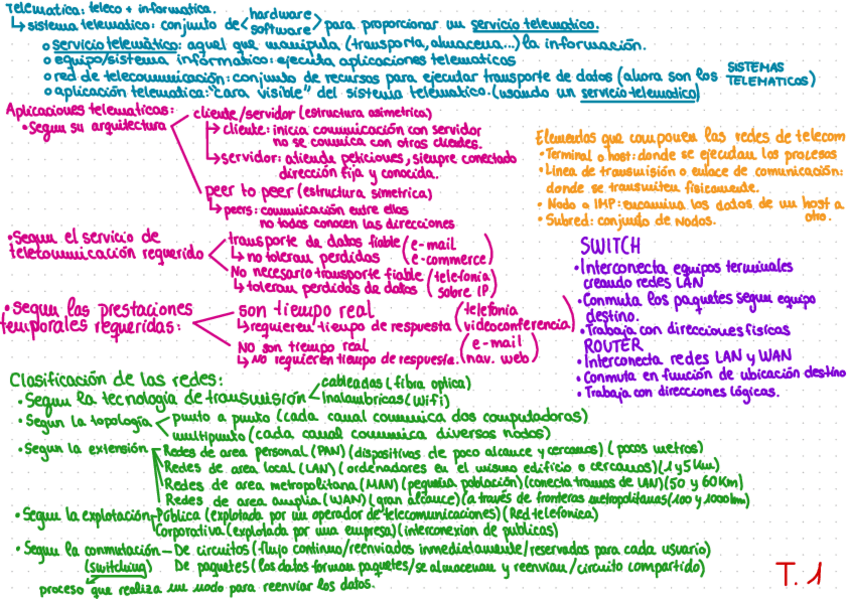 Telematica: teleco + informatica.
↳ sistema telematico: conjunto de < hardware software > para proporcionar un servicio telematico.
o servicio telemàtico: aquel que manipula (transporta, almacena...) la información.
o equipo/sistema informatico: ejecuta aplicaciones telematicas
o red de telecomunicación: conjunto de recursos para ejecutar transporte de datos (ahora son los SISTEMAS TELEMATICOS)
o aplicación telematica: "cara visible" del sistema telematico. (usando un servicio telematico)
Aplicaciones telematicas:
• Segun su arquitectura
cliente/servidor (estructura asimetrica)
↳ cliente: inicia comunicación con servidor
no se comunica con otros clientes.
↳ servidor: atiende peticiones, siempre conectado
dirección fija y conocida.
peer to peer (estructura simetrica)
↳ peers: comunicación entre ellos
no todos conocen las direcciones
• Segun el servicio de
telecomunicación requerido
transporte de datos fiable (e-mail
↳ no toleran perdidas e-commerce)
No necesario transporte fiable (telefonia
↳ toleran perdidas de datos sobre IP)
• Segun las prestaciones
temporales requeridas:
son tiempo real (telefonía
↳ requieren tiempo de respuesta videoconferencia)
NO son tiempo real (e-mail
↳ No requieren tiempo de respuesta. nav. web)
Elementos que componen las redes de telecom
• Terminal o host: donde se ejecutan los procesos
• Linea de transmisión o enlace de comunicación:
donde se transmiten fisicamente.
• Nodo o IMP: encamina los datos de un host a
otro.
• Subred: conjunto de nodos.
SWITCH
• Interconecta equipos terminales
creando redes LAN
• Conmuta los paquetes segun equipo
destino.
• Trabaja con direcciones fisicas
ROUTER
• Interconecta redes LAN y WAN
• Conmuta en función de ubicación destino
• Trabaja con direcciones lógicas.
Clasificación de las redes:
• Segun la tecnología de transmisión < cableadas (fibra optica)
Inalambricas (wifi)
• Segun la topología < punto a punto (cada canal comunica dos computadoras)
multipunto (cada canal comunica diversos nodos)
• Segun la extensión
Redes de area personal (PAN) (dispositivos de poco alcance y cercanos) (pocos metros)
Redes de area local (LAN) (ordenadores en el mismo edificio o cercanos) (1 y 5 Km)
Redes de area metropolitana (MAN) (pequeña población) (conecta tramos de LAN) (50 y 60 Km)
Redes de area amplia (WAN) (gran alcance) (a través de fronteras metropolitanas) (100 y 1000 km)
• Segun la explotación - Pública (explotada por un operador de telecomunicaciones) (Red telefonica)
Corporativa (explotada por una empresa) (interconexion de publicas)
• Segun la conmutación - De circuitos (flujo continuo/reenviados inmediatamente/reservados para cada usuario)
(switching) De paquetes (los datos forman paquetes/se almacenan y reenvian/circuito compartido)
proceso que realiza un nodo para reenviar los datos.
T. 1